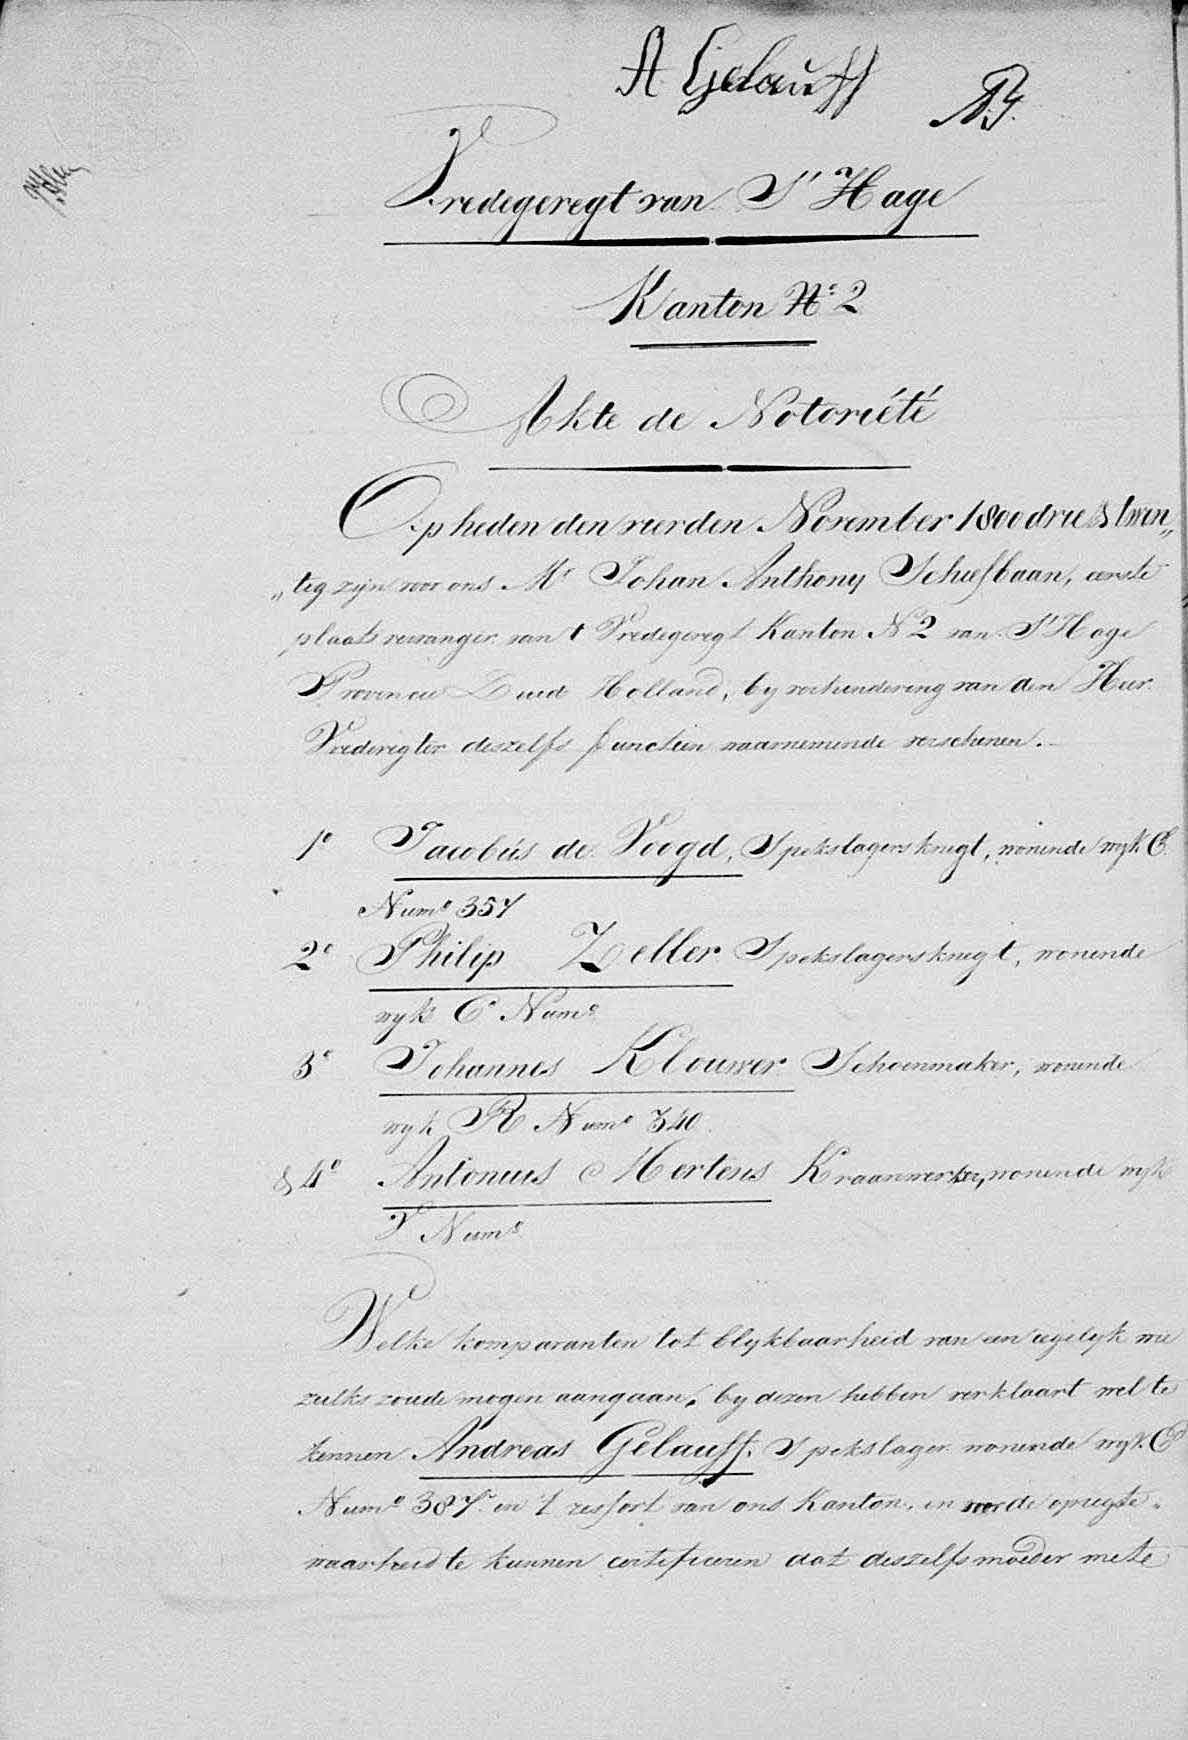 A Gelauff
Vredegeregt van S' Hage
Kanton No. 2
Akte de Notoriété
Op heden den vierden November 1800 drie & twin„
„tig zijn voor ons Mr Johan Anthony Schiefbaan, eerste
plaatsvervanger van t Vredegeregt Kanton No 2 van S'Hage
Provincie Zuid Holland, by verhindering van den Heer
Vrederegter deszelfs functien waarnemende verschenen.
1o Jacobús de Voogd, Spekslagersknegt, wonende wyk C
Numo 357
2o Philip Zeller Spekslagersknegt, wonende
wyk C Numo
3o Johannes Klouwer Schoenmaker, wonende
wyk R Numo 340.
& 4o Antonius Mertens Kraanwerker, wonende wyk
V Numo
Welke komparanten tot blykbaarheid van een iegelyk wie
zulks zoude mogen aangaan, by dezen hebben verklaart wel te
kennen Andreas Gelauff, Spekslager wonende wyk C
Numo 387. in 't ressort van ons Kanton, en voor de opregte
waarheid te kunnen certificeren dat deszelfs moeder met